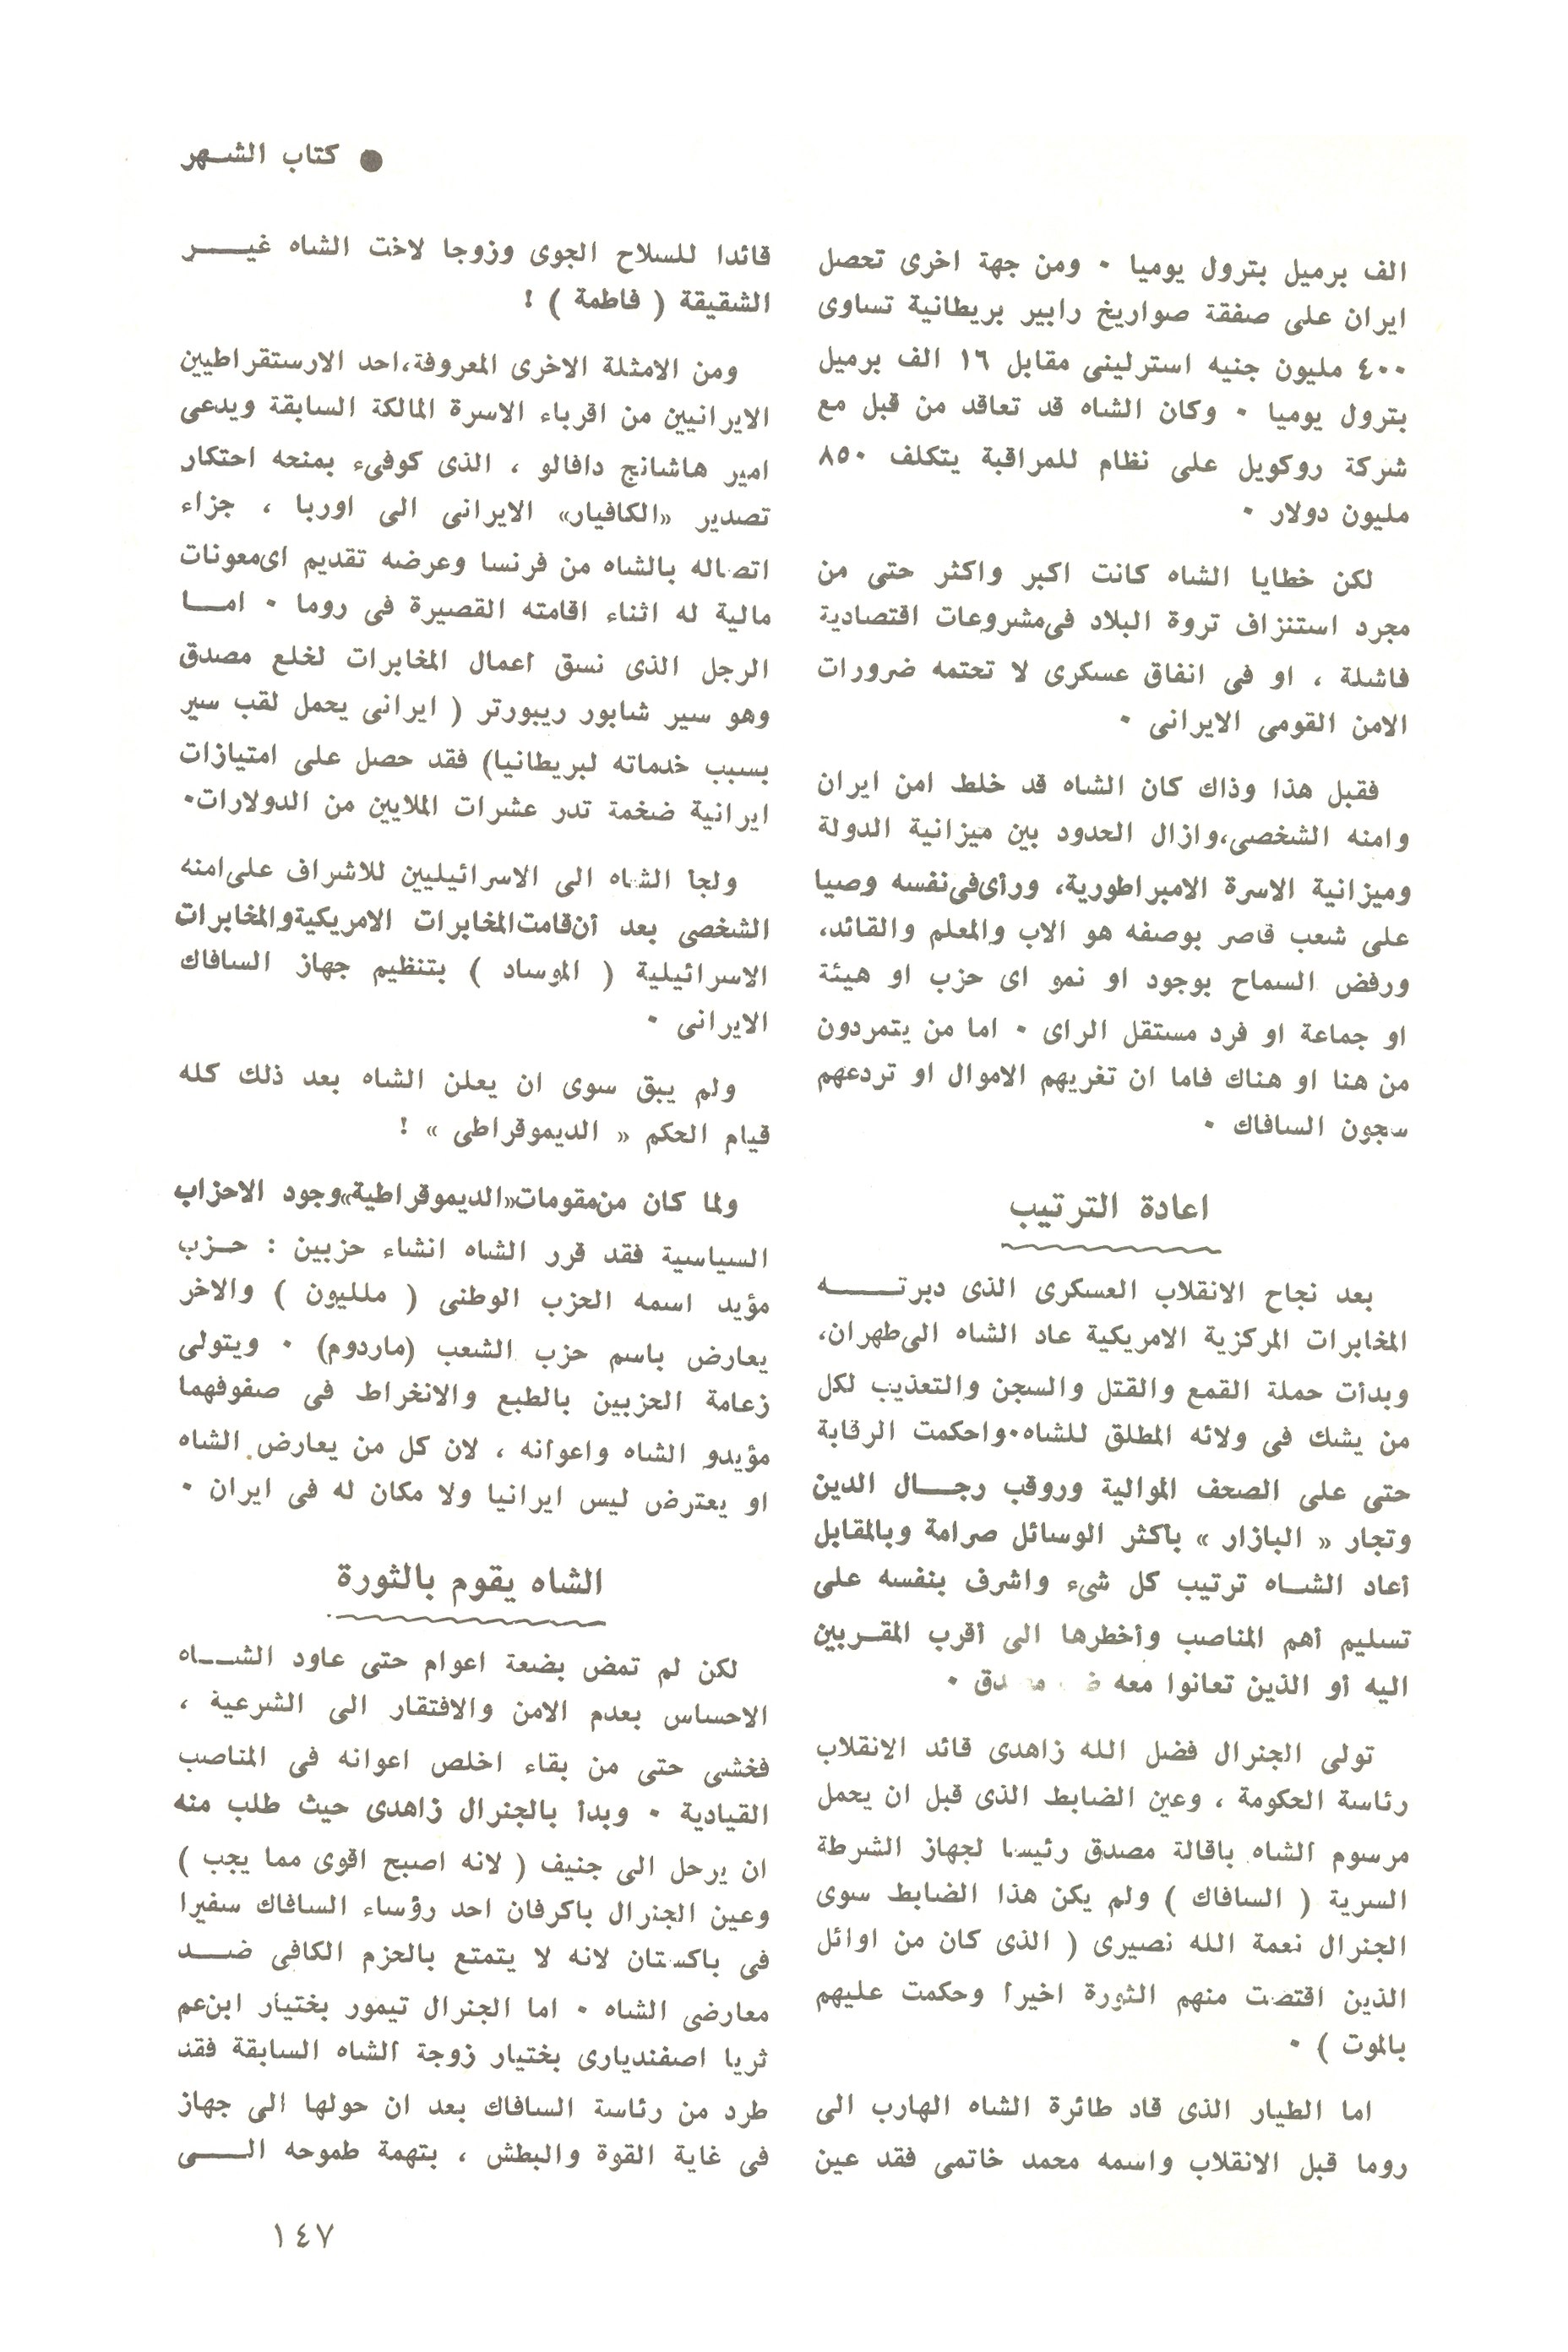 ● كتاب الشهر
الف برميل بترول يوميا ٠ ومن جهة اخرى تحصل
ايران على صفقة صواريخ رابير بريطانية تساوى
٤٠٠ مليون جنيه استرلينى مقابل ١٦ الف برميل
بترول يوميا ٠ وكان الشاه قد تعاقد من قبل مع
شركة روكويل على نظام للمراقبة يتكلف ٨٥٠
مليون دولار ٠
لكن خطايا الشاه كانت اكبر واكثر حتى من
مجرد استنزاف تروة البلاد فى مشروعات اقتصادية
فاشلة ، او فى انفاق عسكرى لا تحتمه ضرورات
الامن القومى الايرانى ٠
فقبل هذا وذاك كان الشاه قد خلط امن ايران
وامنه الشخصى، وازال الحدود بين ميزانية الدولة
وميزانية الاسرة الامبراطورية، ورأى فى نفسه وصيا
على شعب قاصر بوصفه هو الاب والمعلم والقائد،
ورفض السماح بوجود او نمو اى حزب او هيئة
او جماعة او فرد مستقل الراى ٠ اما من يتمردون
من هنا او هناك فاما ان تغريهم الاموال او تردعهم
سجون السافاك ٠
اعادة الترتيب
بعد نجاح الانقلاب العسكرى الذى دبرته
المخابرات المركزية الامريكية عاد الشاه الى طهران،
وبدأت حملة القمع والقتل والسجن والتعذيب لكل
من يشك فى ولائه المطلق للشاه٠ واحكمت الرقابة
حتى على الصحف الموالية وروقب رجال الدين
وتجار « البازار » بأكثر الوسائل صرامة وبالمقابل
أعاد الشاه ترتيب كل شىء واشرف بنفسه على
تسليم أهم المناصب وأخطرها الى أقرب المقربين
اليه أو الذين تعانوا معه ٠
تولى الجنرال فضل الله زاهدى قائد الانقلاب
رئاسة الحكومة ، وعين الضابط الذى قبل ان يحمل
مرسوم الشاه باقالة مصدق رئيسا لجهاز الشرطة
السرية ( السافاك ) ولم يكن هذا الضابط سوى
الجنرال نعمة الله نصيرى ( الذى كان من اوائل
الذين اقتصت منهم الثورة اخيرا وحكمت عليهم
بالموت ) ٠
اما الطيار الذى قاد طائرة الشاه الهارب الى
روما قبل الانقلاب واسمه محمد خاتمى فقد عين
قائدا للسلاح الجوى وزوجا لاخت الشاه غير
الشقيقة ( فاطمة ) !
ومن الامثلة الاخرى المعروفة، احد الارستقراطيين
الايرانيين من اقرباء الاسرة المالكة السابقة ويدعى
امير هاشانج دافالو ، الذى كوفىء بمنحه احتكار
تصدير «الكافيار» الايرانى الى اوربا ، جزاء
اتصاله بالشاه من فرنسا وعرضه تقديم اى معونات
مالية له اثناء اقامته القصيرة فى روما ٠ اما
الرجل الذى نسق أعمال المخابرات لخلع مصدق
وهو سير شابور ريبورتر ( ايرانى يحمل لقب سير
بسبب خدماته لبريطانيا) فقد حصل على امتيازات
ايرانية ضخمة تدر عشرات الملايين من الدولارات٠
ولجأ الشاه الى الاسرائيليين للاشراف على امنه
الشخصى بعد أن قامت المخابرات الامريكية والمخابرات
الاسرائيلية ( الموساد ) بتنظيم جهاز السافاك
الايرانى ٠
ولم يبق سوى ان يعلن الشاه بعد ذلك كله
قيام الحكم « الديموقراطى » !
ولما كان من مقومات «الديموقراطية» وجود الاحزاب
السياسية فقد قرر الشاه انشاء حزبين : حزب
مؤيد اسمه الحزب الوطنى ( ملليون ) والاخر
يعارض باسم حزب الشعب (ماردوم) ٠ ويتولى
زعامة الحزبين بالطبع والانخراط فى صفوفهما
مؤيدو الشاه واعوانه ، لان كل من يعارض الشاه
او يعترض ليس ايرانيا ولا مكان له فى ايران ٠
الشاه يقوم بالثورة
لكن لم تمض بضعة اعوام حتى عاود الشاه
الاحساس بعدم الامن والافتقار الى الشرعية ،
فخشى حتى من بقاء اخلص اعوانه فى المناصب
القيادية ٠ وبدأ بالجنرال زاهدى حيث طلب منه
ان يرحل الى جنيف ( لانه اصبح اقوى مما يجب )
وعين الجنرال باكرفان احد رؤساء السافاك سفيرا
فى باكستان لانه لا يتمتع بالحزم الكافى ضد
معارضى الشاه ٠ اما الجنرال تيمور بختيار ابن عم
ثريا اصفنديارى بختيار زوجة الشاه السابقة فقد
طرد من رئاسة السافاك بعد ان حولها الى جهاز
فى غاية القوة والبطش ، بتهمة طموحه الى
١٤٧